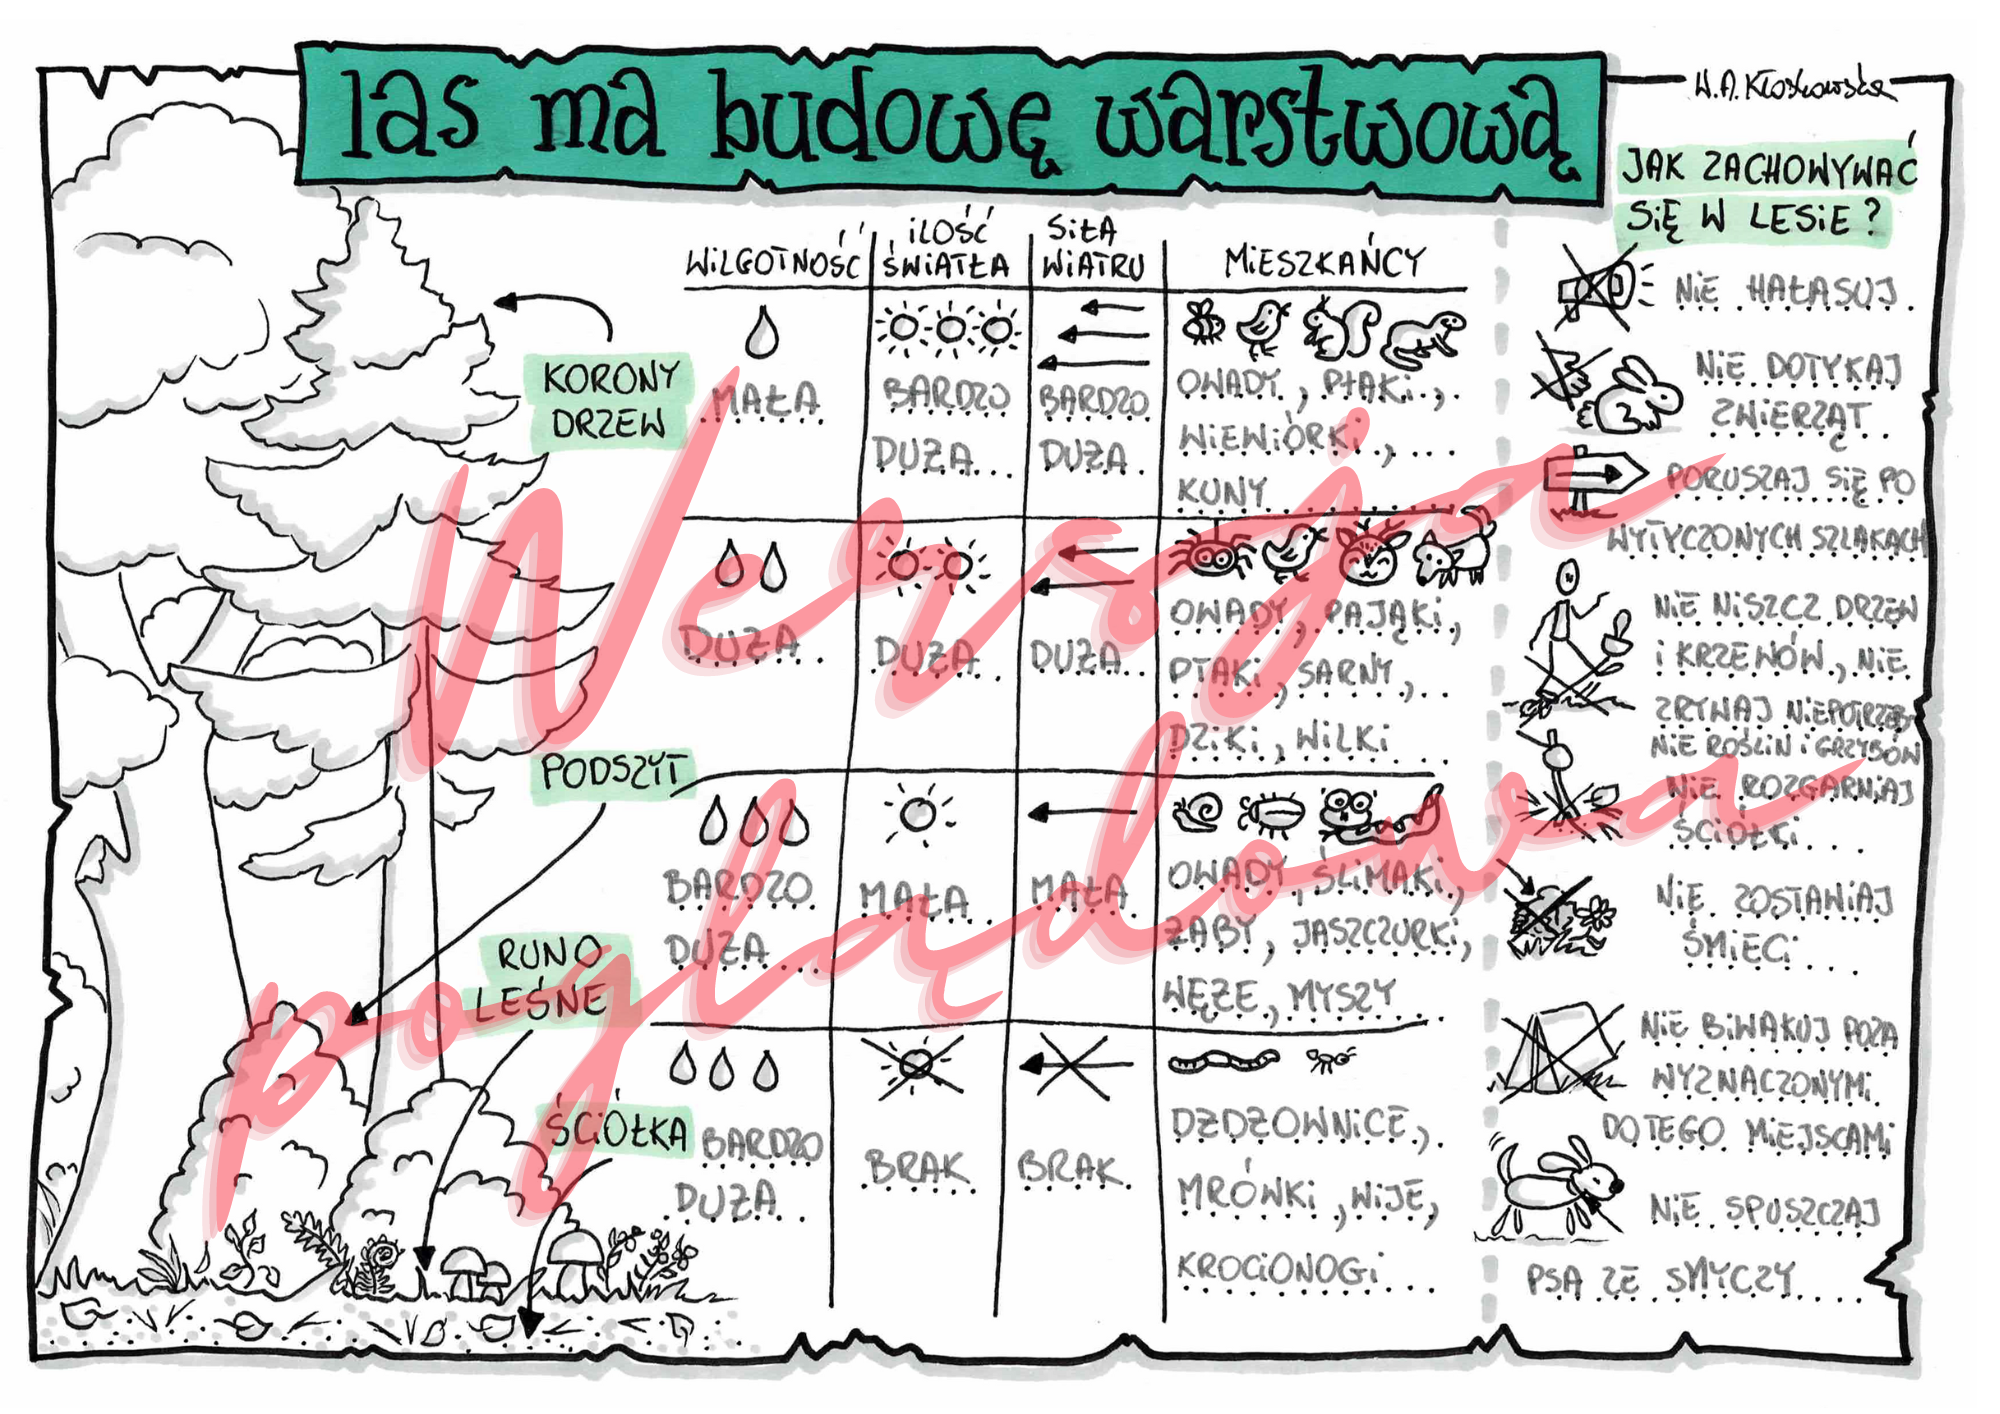 las ma budowę warstwową
W.A. Kłoskowska
WiLGOTNOŚĆ
iLOŚĆ
ŚWiATŁA
SiŁA
WiATRU
MiESZKAŃCY
KORONY
DRZEW
MAŁA
BARDZO
DUŻA
BARDZO
DUŻA
OWADY, PTAKi,
WiEWiÓRKi,
KUNY
PODSZYT
DUŻA
DUŻA
DUŻA
OWADY, PAJĄKi,
PTAKi, SARNY,
DZiKi, WiLKi
RUNO
LEŚNE
BARDZO
DUŻA
MAŁA
MAŁA
OWADY, ŚLiMAKi,
ŻABY, JASZCZURKi,
WĘŻE, MYSZY
ŚCiÓŁKA
BARDZO
DUŻA
BRAK
BRAK
DŻDŻOWNiCE,
MRÓWKi, WiJE,
KROCiONOGi
JAK ZACHOWYWAĆ
SiĘ W LESiE?
NiE HAŁASUJ
NiE DOTYKAJ
ZWiERZĄT
PORUSZAJ SiĘ PO
WYTYCZONYCH SZLAKACH
NiE NiSZCZ DRZEW
i KRZEWÓW, NiE
ZRYWAJ NiEPOTRZEB-
NiE ROŚLiN i GRZYBÓW
NiE ROZGARNiAJ
ŚCiÓŁKi
NiE ZOSTAWiAJ
ŚMiECi
NiE BiWAKUJ POZA
WYZNACZONYMi
DO TEGO MiEJSCAMi
NiE SPUSZCZAJ
PSA ZE SMYCZY
Wersja
poglądowa